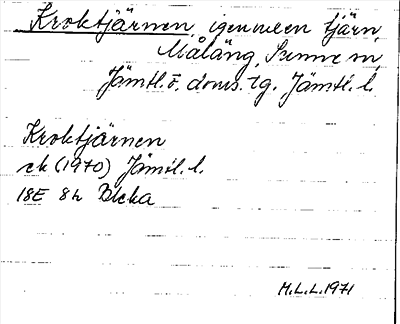 Kroktjärnen, igenvuxen tjärn,
Målång, Sunne sn,
Jämtl. ö. doms. tg. Jämtl. l.
Kroktjärnen
ek (1970) Jämtl. l.
18E 8h Bleka
M.L.L. 1971